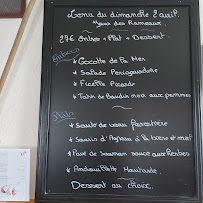 Menu du dimanche 2 avril
Jour des Rameaux
27€ Entrée + Plat + Dessert
Entrées
* Cocotte de la Mer
* Salade Périgourdine
* Ficelle Picarde
* Tatin de Boudin noir aux pommes
Plats
* Sauté de veau forestière
* Souris d'Agneau à la bière et miel
* Pavé de Saumon sauce aux herbes
* Andouillette Moutarde
Dessert au choix